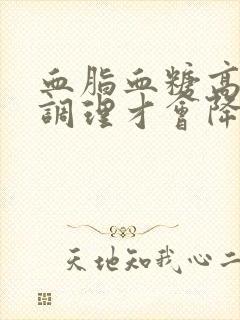 血脂血糖高
調理才會降
天地知我心二